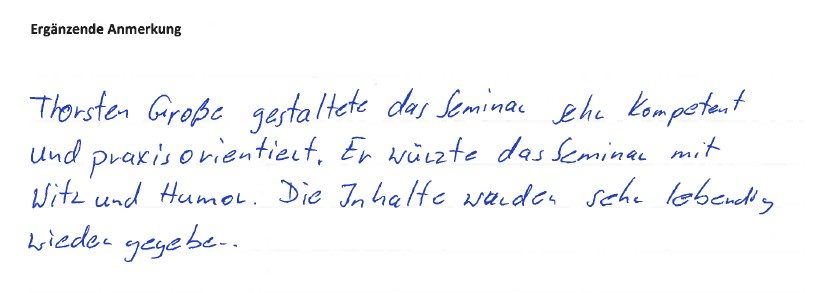 Ergänzende Anmerkung
Thorsten Große gestaltete das Seminar sehr kompetent
und praxisorientiert. Er würzte das Seminar mit
Witz und Humor. Die Inhalte wurden sehr lebendig
wiedergegeben.